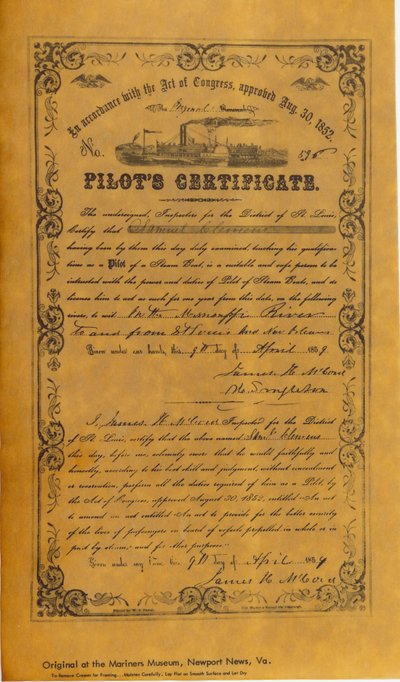 In accordance with the Act of Congress, approved Aug. 30, 1852.
The Original
No. 595
PILOT'S CERTIFICATE.
The undersigned, Inspectors for the District of St. Louis,
Certify that Samuel Clemens
having been by them this day duly examined, touching his qualifica-
tions as a Pilot of a Steam Boat, is a suitable and safe person to be
intrusted with the power and duties of Pilot of Steam Boats, and do
license him to act as such for one year from this date, on the following
rivers, to wit: On the Mississippi River
to and from St Louis and New Orleans
Given under our hands, this 9th day of April 1859
James H McCord
Singleton
I, James H McCord Inspector for the District
of St. Louis, certify that the above named Saml Clemens
this day, before me, solemnly swore that he would faithfully and
honestly, according to his best skill and judgment, without concealment
or reservation, perform all the duties required of him as a Pilot by
the Act of Congress, approved August 30, 1852, entitled "An act
to amend an act entitled 'An act to provide for the better security
of the lives of passengers on board of vessels propelled in whole or in
part by steam,' and for other purposes."
Given under my hand this 9th day of April 1859
James H McCord
Original at the Mariners Museum, Newport News, Va.
To Remove Creases for Framing...Moisten Carefully, Lay Flat on Smooth Surface and Let Dry